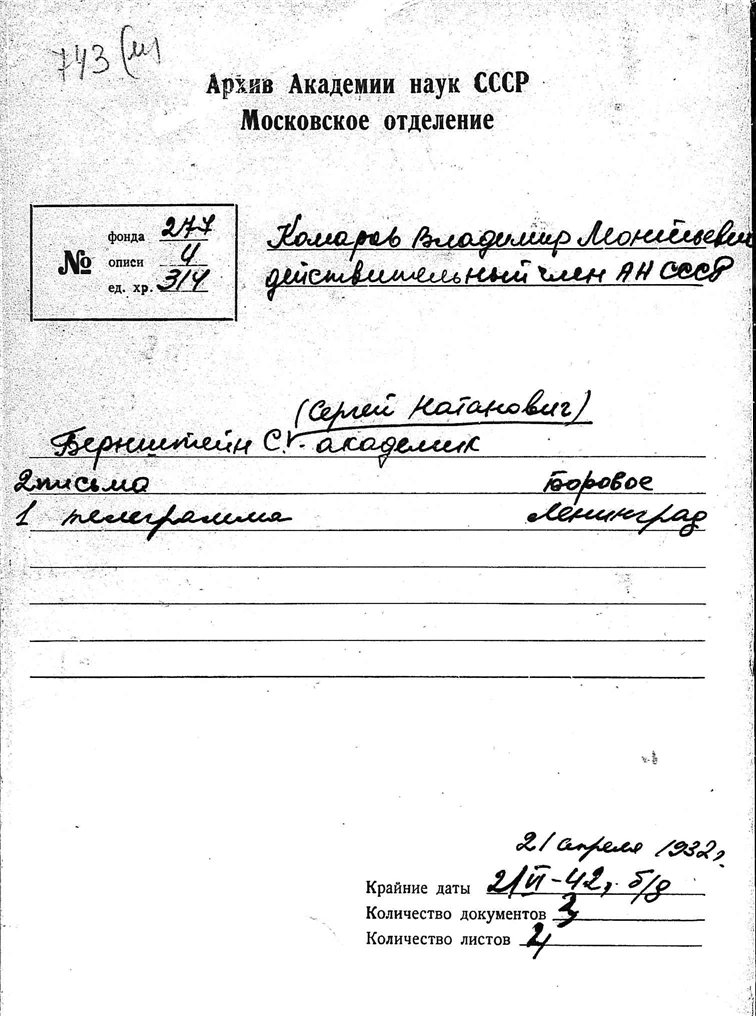 743 (м)
Архив Академии наук СССР
Московское отделение
№
фонда 277
описи 4
ед. хр. 314
Комаров Владимир Леонтьевич
действительный член АН СССР
(Сергей Натанович)
Бернштейн С. академик
2 письма Боровое
1 телеграмма Ленинград
21 апреля 1932 г.
Крайние даты 21 VI-42, б/д
Количество документов 3
Количество листов 4